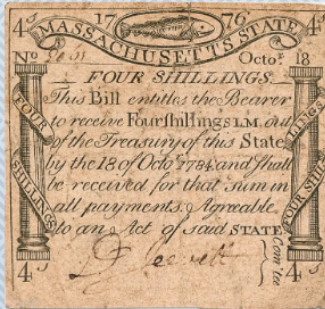 4s 17 76 4s
MASSACHUSETTS STATE
No Octor 18
FOUR SHILLINGS.
This Bill entitles the Bearer
to receive Four shillings L.M. out
of the Treasury of this State
by the 18 of Octor 1784, and shall
be received for that sum in
all payments. Agreeable
to an Act of said STATE
FOUR SHILLINGS
FOUR SHILLINGS
4s 4s